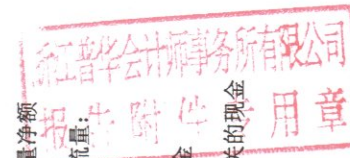 浙江普华会计师事务所有限公司
报告附件专用章
量净额
流量：
金
关的现金